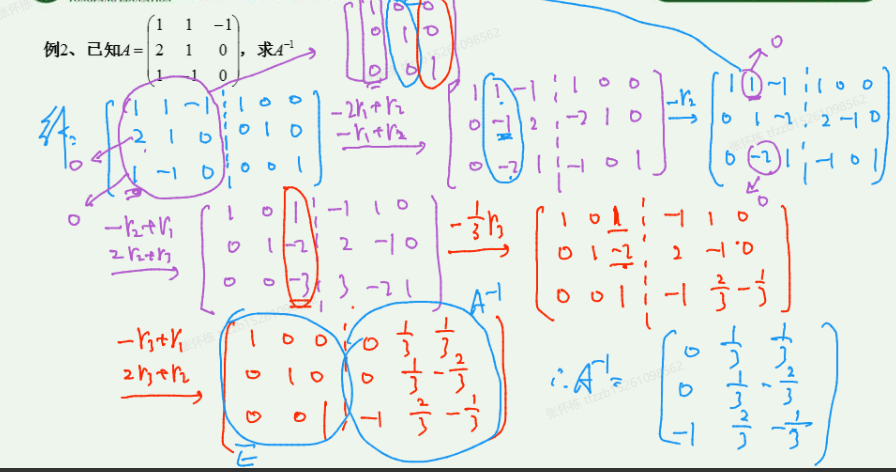 例2、已知A= ( 1 1 -1 ; 2 1 0 ; 1 -1 0 ), 求A⁻¹
[ 1 0 0 ; 0 1 0 ; 0 0 1 ]
[ 1 1 -1 ¦ 1 0 0 ; 2 1 0 ¦ 0 1 0 ; 1 -1 0 ¦ 0 0 1 ]
0
0
-2r₁+r₂
-r₁+r₂
[ 1 1 -1 ¦ 1 0 0 ; 0 -1 2 ¦ -2 1 0 ; 0 -2 1 ¦ -1 0 1 ]
-r₂
0
[ 1 1 -1 ¦ 1 0 0 ; 0 1 -2 ¦ 2 -1 0 ; 0 -2 1 ¦ -1 0 1 ]
0
-r₂+r₁
2r₂+r₃
[ 1 0 1 ¦ -1 1 0 ; 0 1 -2 ¦ 2 -1 0 ; 0 0 -3 ¦ 3 -2 1 ]
-1/3 r₃
[ 1 0 1 ¦ -1 1 0 ; 0 1 -2 ¦ 2 -1 0 ; 0 0 1 ¦ -1 2/3 -1/3 ]
-r₃+r₁
2r₃+r₂
[ 1 0 0 ¦ 0 1/3 1/3 ; 0 1 0 ¦ 0 1/3 -2/3 ; 0 0 1 ¦ -1 2/3 -1/3 ]
E
A⁻¹
∴A⁻¹= [ 0 1/3 1/3 ; 0 1/3 -2/3 ; -1 2/3 -1/3 ]